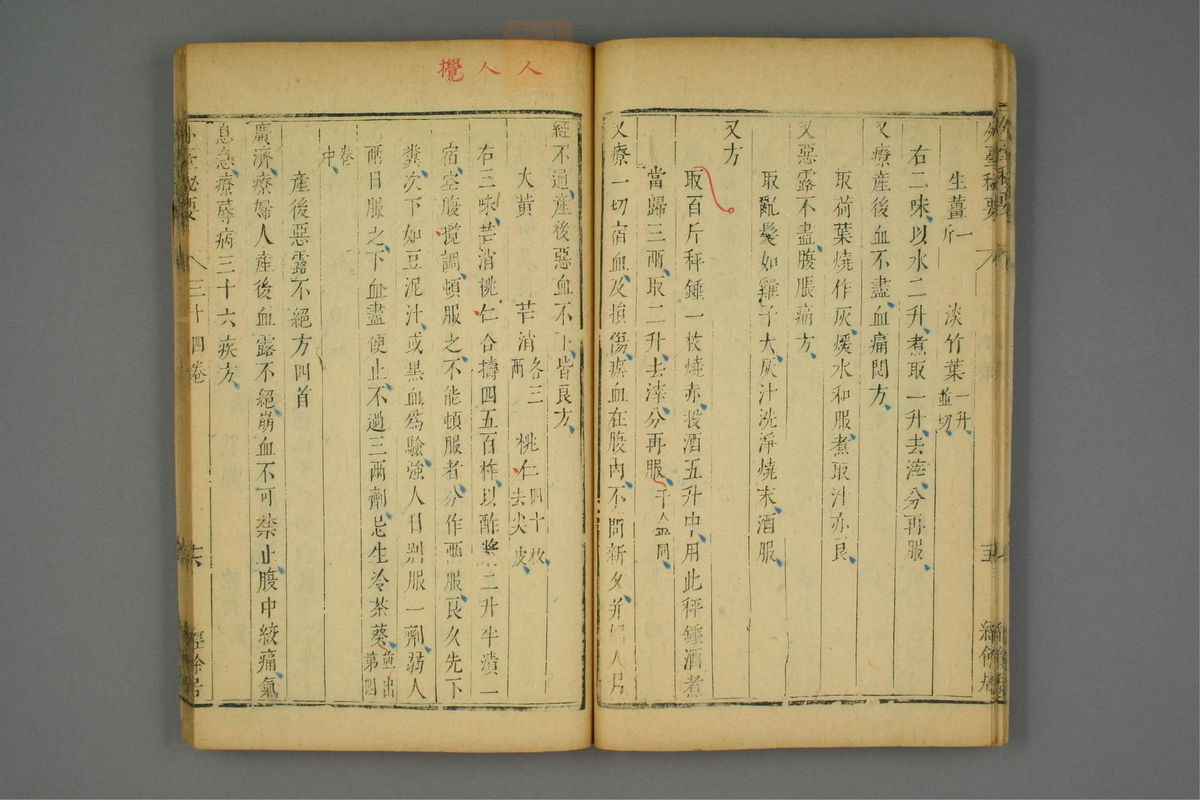 生薑一斤 淡竹葉一升並切
右二味以水二升煮取一升去滓分再服
又療產後血不盡血痛悶方
取荷葉燒作灰煖水和服煮取汁亦良
又惡露不盡腹脹痛方
取亂髮如雞子大灰汁洗淨燒末酒服
又方
取百斤秤錘一枚燒赤投酒五升中用此秤錘酒煮
當歸三兩取二升去滓分再服千金同
又療一切宿血及損傷瘀血在腹內不問新久并婦人月
人人攪
經不通產後惡血不下皆良方
大黃 芒消各三兩 桃仁四十枚去尖皮
右三味芒消桃仁合擣四五百杵以酢漿二升半漬一
宿空腹攪調頓服之不能頓服者分作兩服良久先下
糞次下如豆泥汁或黑血為驗強人日別服一劑弱人
兩日服之下血盡便止不過三兩劑忌生冷茶葵並出第四
卷中
產後惡露不絕方四首
廣濟療婦人產後血露不絕崩血不可禁止腹中絞痛氣
息急療蓐病三十六疾方
外臺秘要 三十四卷 十六 經餘居